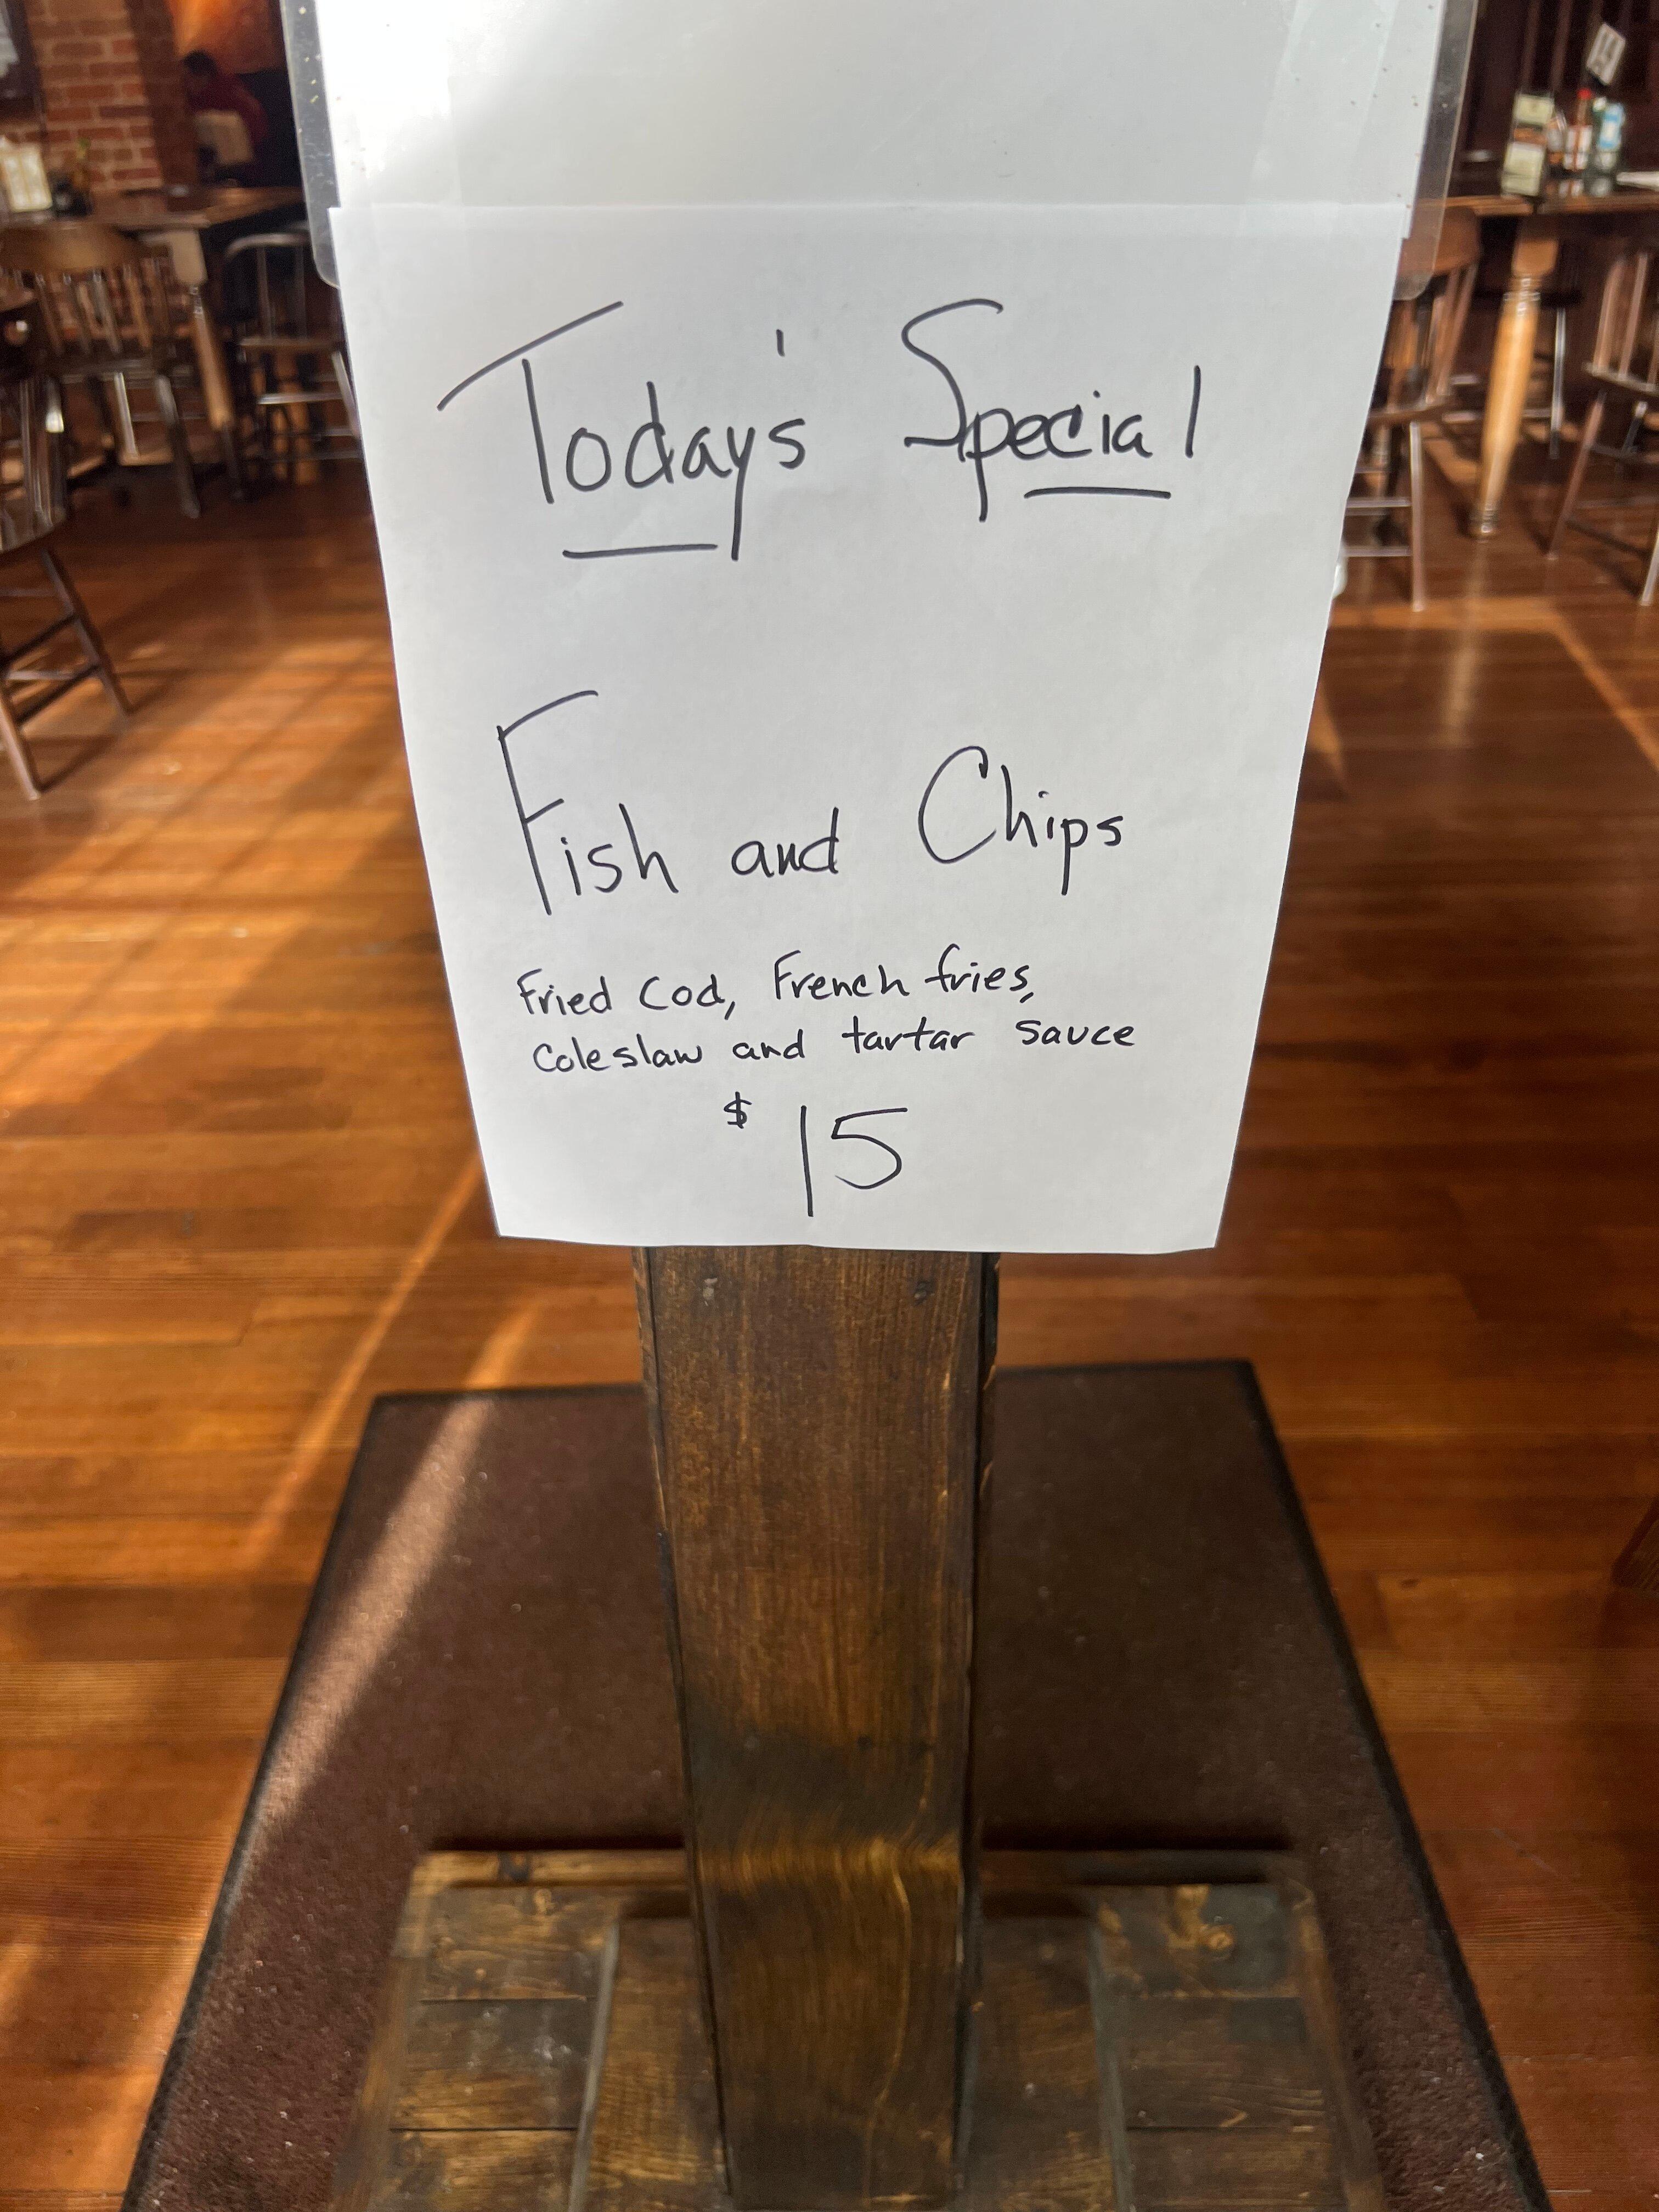 Today's Special
Fish and Chips
Fried Cod, French fries,
Coleslaw and tartar sauce
$15